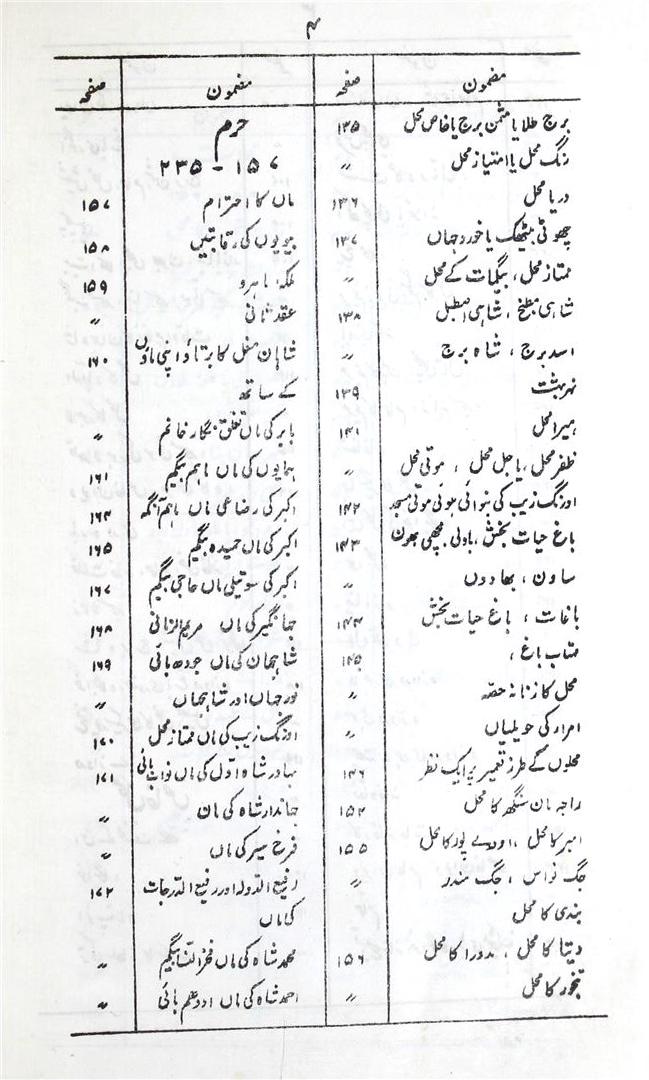 ۴
مضمون صفحہ
برج طلا یا مثمن برج یا خاص محل ۱۳۵
رنگ محل یا امتیاز محل 〃
دریا محل ۱۳۶
چھوٹی بیٹھک یا خورد جہاں ۱۳۷
ممتاز محل ، بیگمات کے محل 〃
شاہی مطبخ ، شاہی اصطبل ۱۳۸
اسد برج ، شاہ برج 〃
نہر بہشت ۱۳۹
ہیرا محل ۱۴۱
ظفر محل ، یا جل محل ، موتی محل 〃
اورنگ زیب کی بنوائی ہوئی موتی مسجد ۱۴۲
باغ حیات بخش ، باولی ، مچھی بھون ۱۴۳
ساون ، بھادوں 〃
باغات ، باغ حیات بخش ۱۴۴
متاب باغ ، ۱۴۵
محل کا زنانہ حصہ 〃
امراء کی حویلیاں 〃
محلوں کے طرز تعمیر پر ایک نظر ۱۴۶
راجہ مان سنگھ کا محل ۱۵۲
امبر کا محل ، اودے پور کا محل ۱۵۵
جگ نواس ، جگ مندر 〃
بندی کا محل
دیتا کا محل ، مدورا کا محل ۱۵۶
تنجور کا محل 〃
مضمون صفحہ
حرم
۱۵۷ - ۲۳۵
ماں کا احترام ۱۵۷
بیویوں کی رقابتیں ۱۵۸
ملکہ ماہرو ۱۵۹
عقد ثانی 〃
شاہان مغل کا برتاؤ اپنی ماؤں ۱۶۰
کے ساتھ
بابر کی ماں قتلق نگار خانم 〃
ہمایوں کی ماں ماہم بیگم ۱۶۱
اکبر کی رضاعی ماں ماہم آنگہ ۱۶۴
اکبر کی ماں حمیدہ بیگم ۱۶۵
اکبر کی سوتیلی ماں حاجی بیگم ۱۶۷
جہانگیر کی ماں مریم الزمانی ۱۶۸
شاہجہان کی ماں جودھ بائی ۱۶۹
نور جہاں اور شاہجہاں 〃
اورنگ زیب کی ماں ممتاز محل ۱۷۰
بہادر شاہ اول کی ماں نواب بائی ۱۷۱
جہاندار شاہ کی ماں 〃
فرخ سیر کی ماں 〃
رفیع الدولہ اور رفیع الدرجات ۱۷۲
کی ماں
محمد شاہ کی ماں فخرالنسا بیگم 〃
احمد شاہ کی ماں اودھم بائی 〃